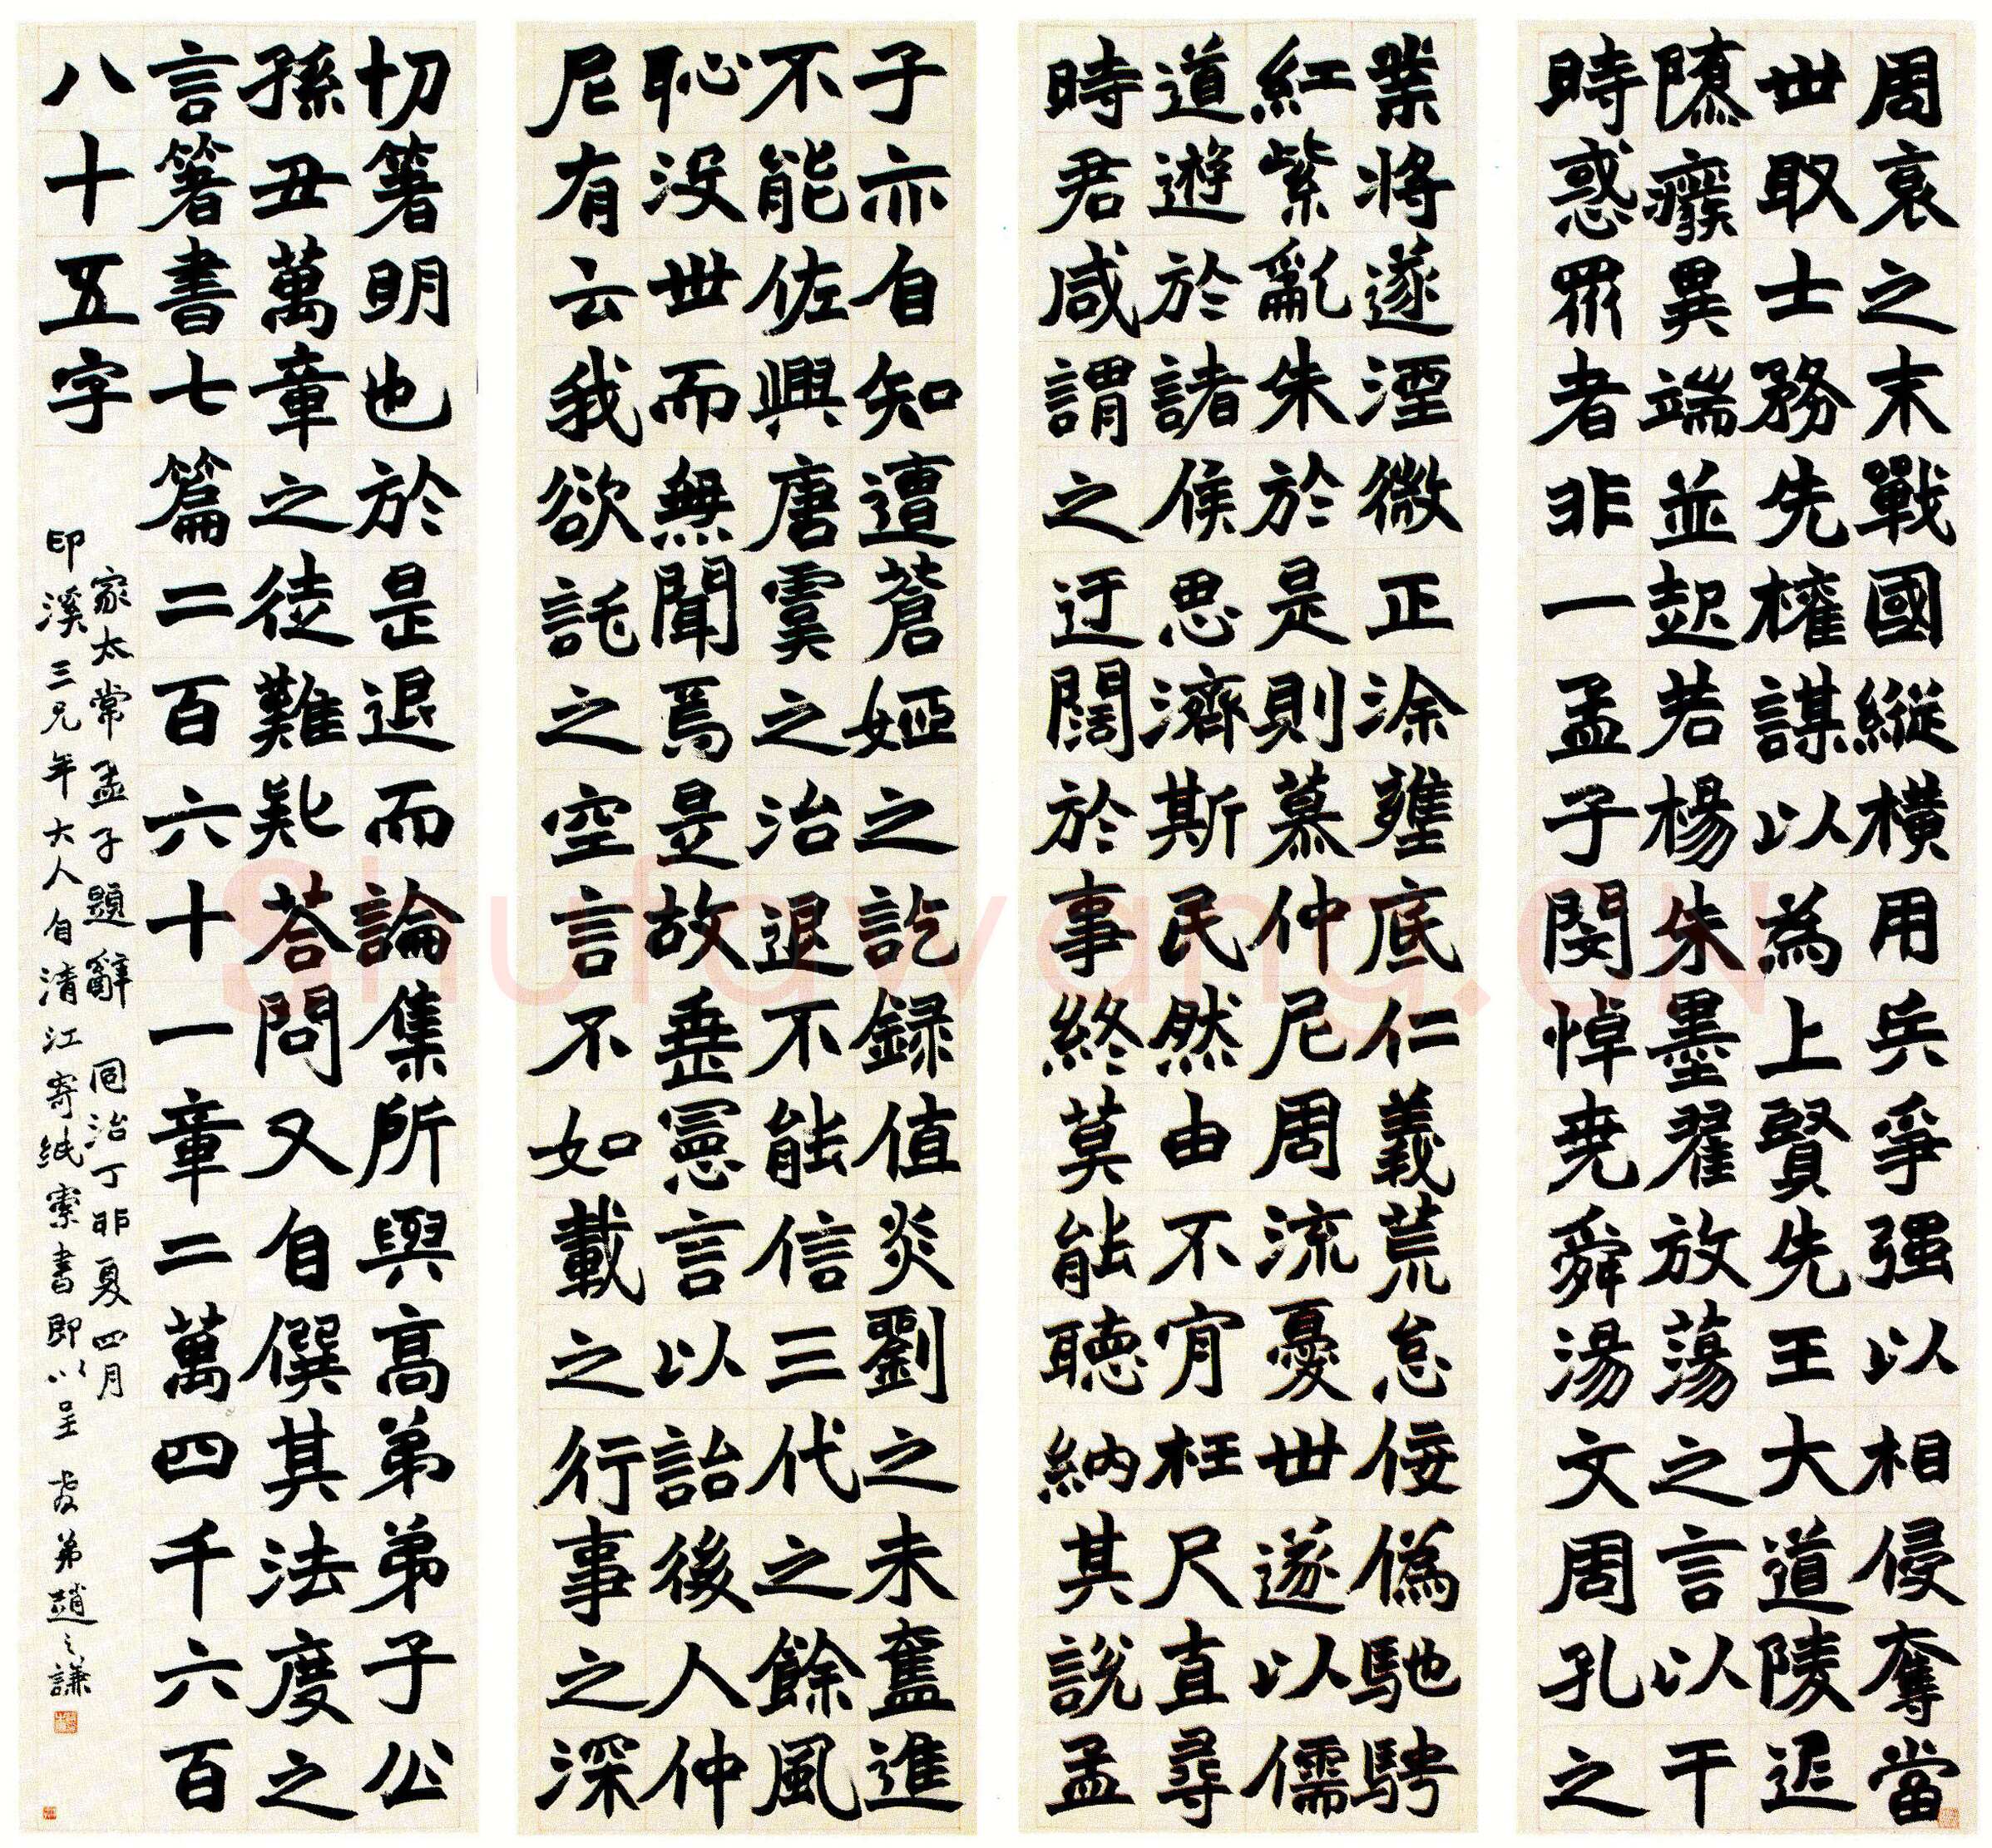 周衰之末戰國縱橫用兵爭强以相侵奪當
世取士務先權謀以為上賢先王大道陵遲
隳廢異端並起若楊朱墨翟放蕩之言以干
時惑眾者非一孟子閔悼尭舜湯文周孔之
業將遂湮微正塗壅底仁義荒怠佞偽馳騁
紅紫亂朱於是則慕仲尼周流憂世遂以儒
道遊於諸侯思濟斯民然由不肯枉尺直尋
時君咸謂之迂闊於事終莫能聽納其說孟
子亦自知遭蒼姬之訖録值炎劉之未奮進
不能佐興唐虞之治退不能信三代之餘風
恥没世而無聞焉是故垂憲言以詒後人仲
尼有云我欲託之空言不如載之行事之深
切箸明也於是退而論集所與高弟弟子公
孫丑萬章之徒難疑荅問又自僎其法度之
言箸書七篇二百六十一章二萬四千六百
八十五字
家太常孟子題辭 同治丁卯夏四月
印溪三兄年大人自清江寄紙索書即以呈 教弟趙之謙
Shufawang.CN